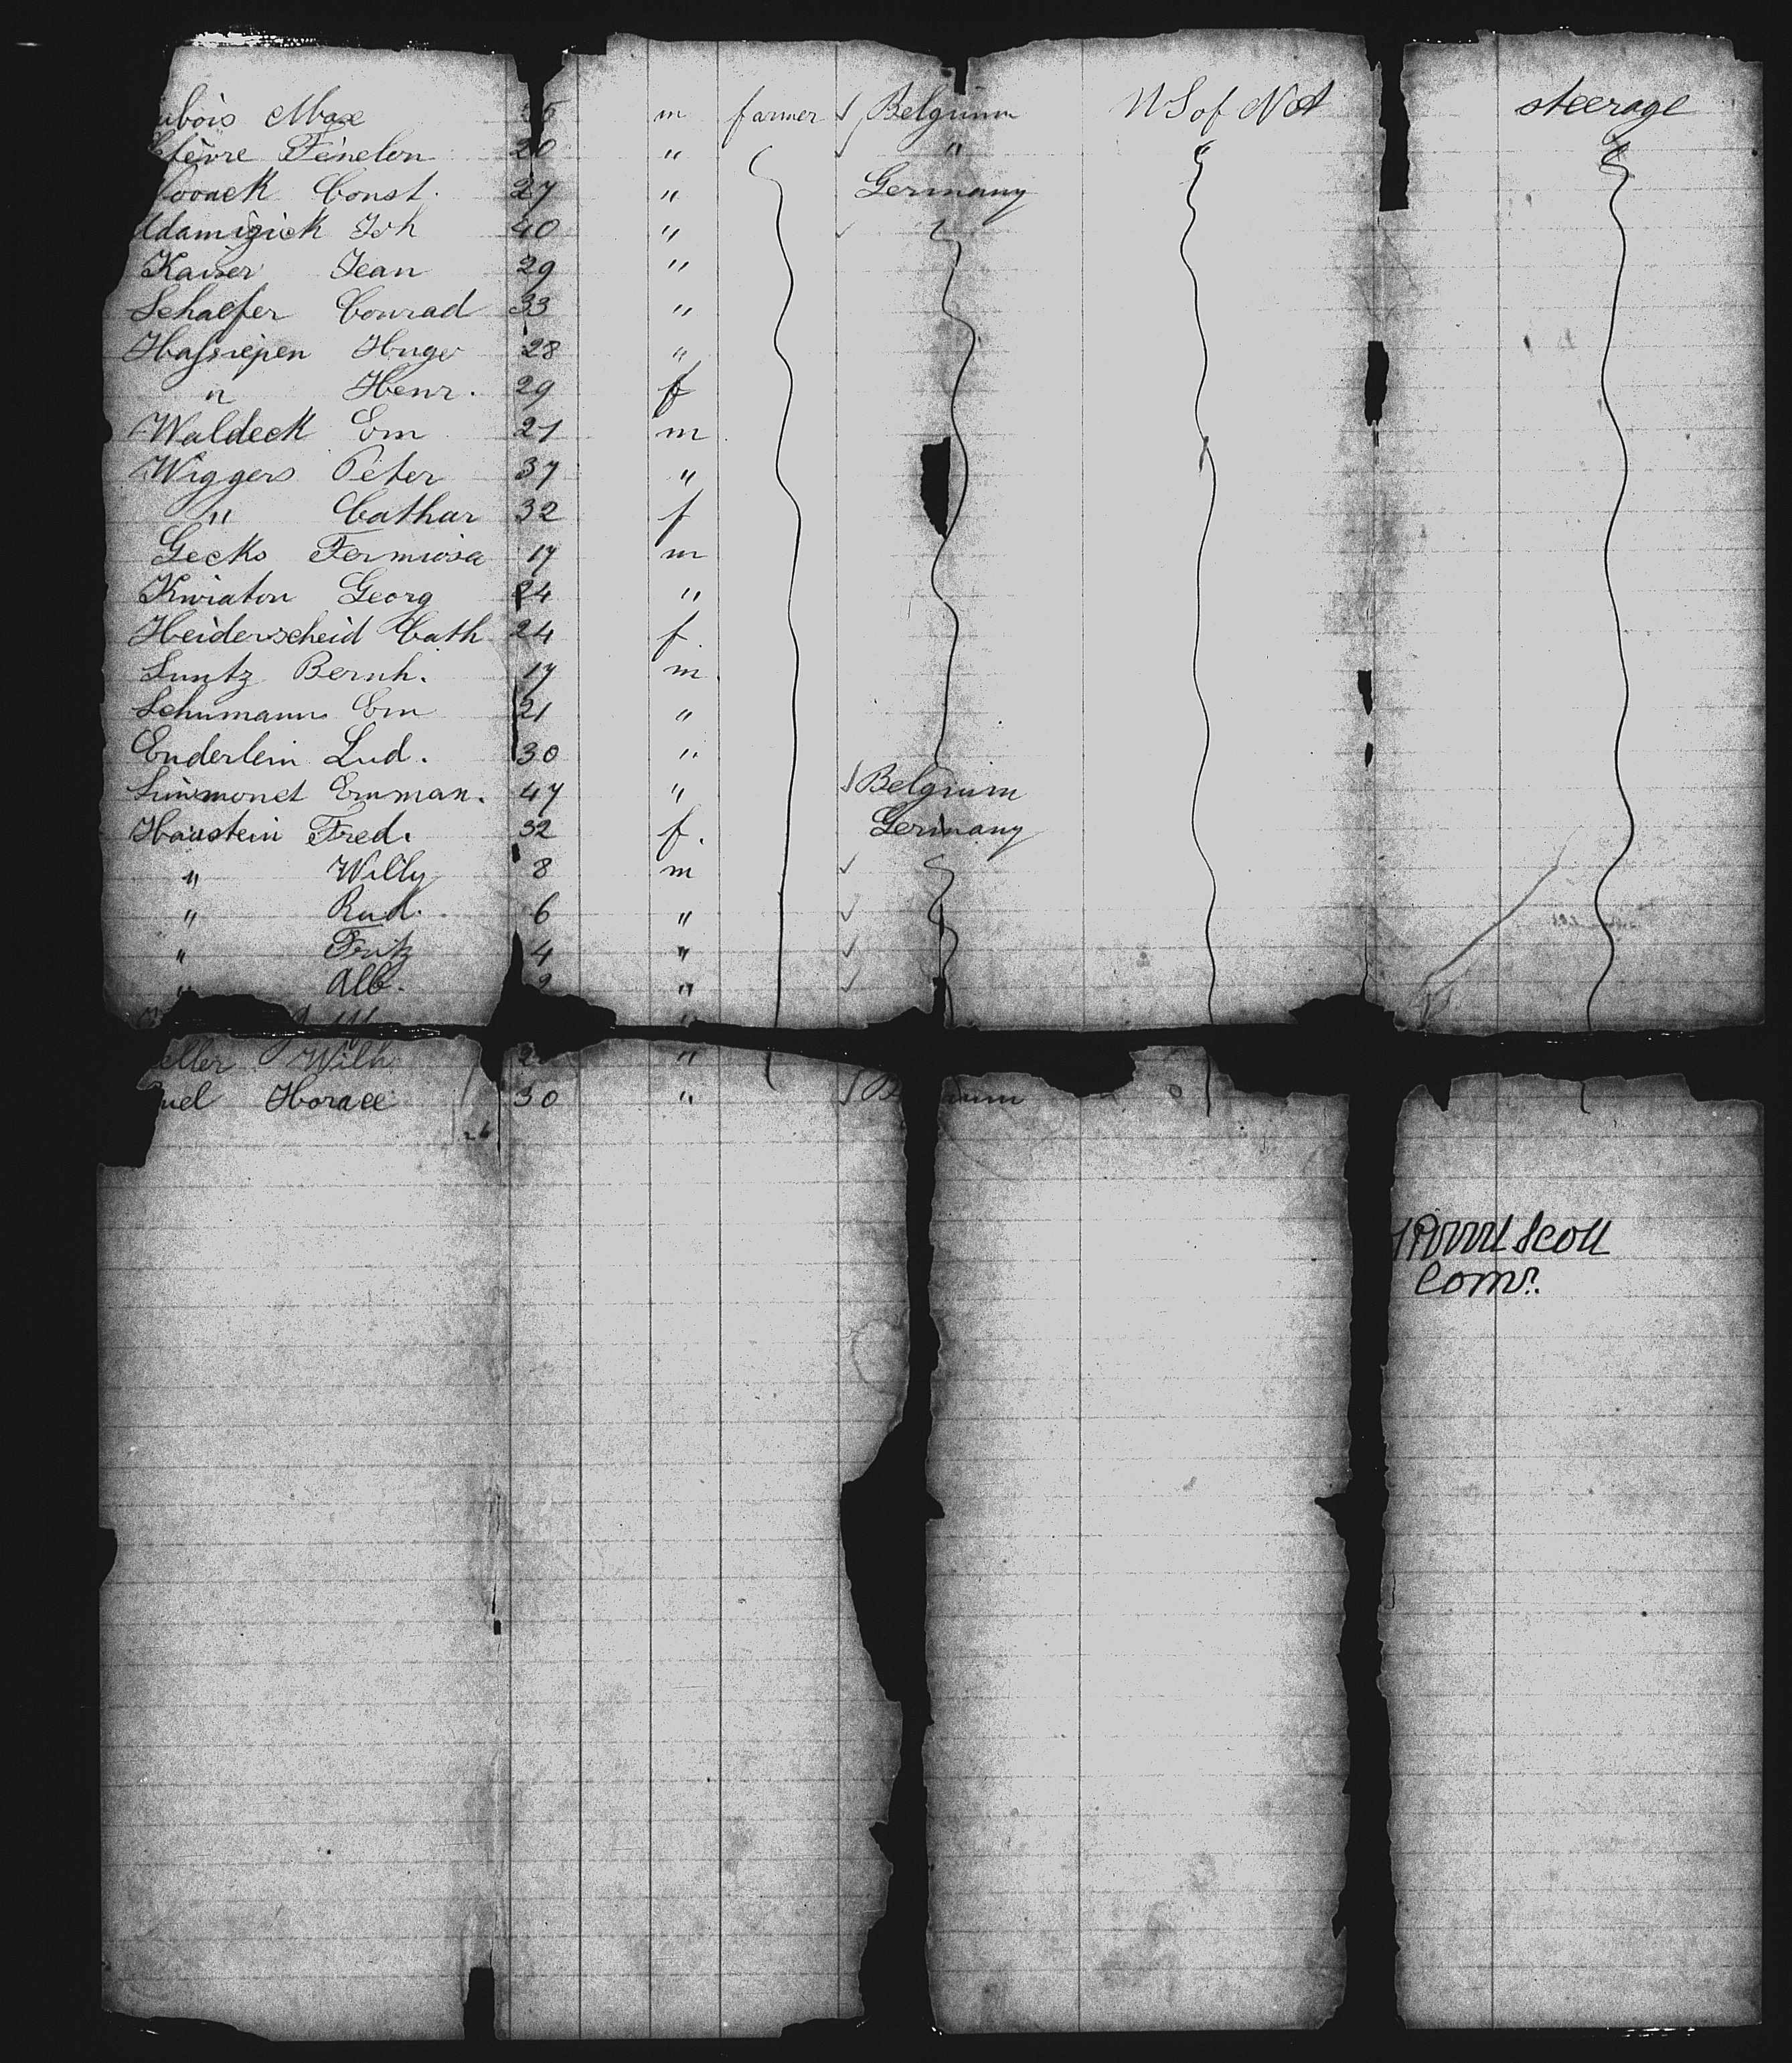 ubois Max 35 m farmer √ Belgium U S of N A steerage
efèvre Fénelon 20 " √ " "
Const. 27 " Germany
Adamizick Joh 40 " √
Kaiser Jean 29 "
Schaefer Conrad 33 "
Hassiepen Hugo 28 "
" Henr. 29 f
Waldeck Em 21 m
Wiggers Peter 37 "
" Cathar 32 f
Gecks 17 m
Kwiaton Georg 24 "
Heiderscheid Cath 24 f
Luntz Bernh. 17 m
Schumann Em 21 "
Enderlein Lud. 30 "
Simmonet Emman. 47 " √ Belgium
Haustein Fred. 32 f. Germany
" Willy 8 m √
" Rud. 6 " √
" Fritz 4 " √
" Alb. " √
eller Wilh "
uel Horace 30 " √ B ium
Scott
Comr.